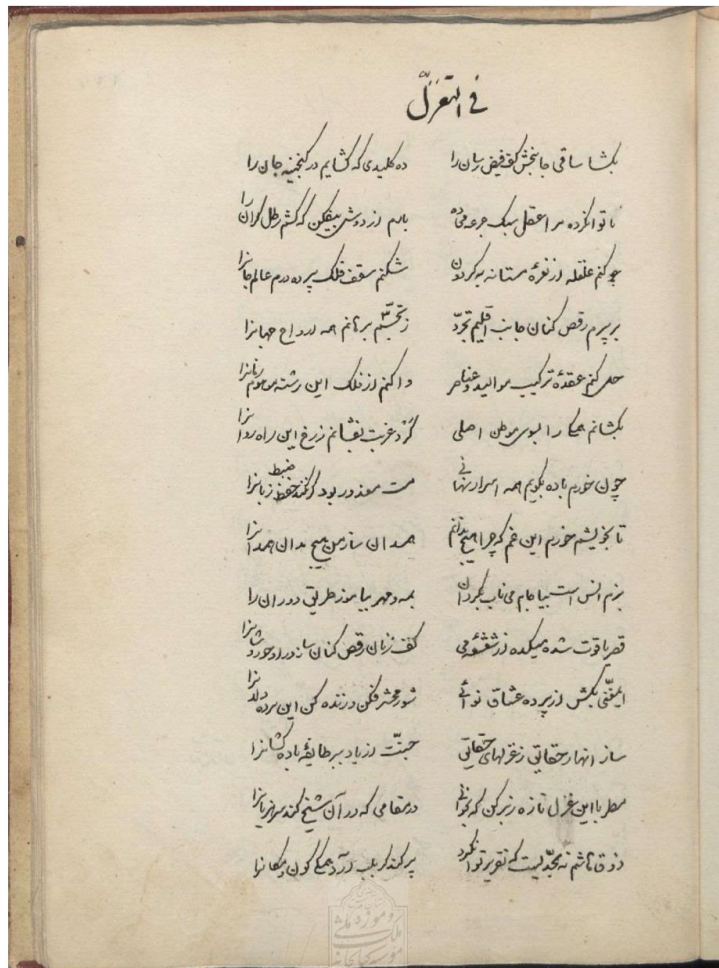 فی التغزّل
بگشا ساقی جانبخش کف فیض رسان را ده کلیدی که گشایم در گنجینه جان را
ناتوان کرده مرا عقل سبک جرعه می ده بارم از دوش بیفکن که کشم رطل گران را
چو کنم غلغله از نعره مستانه بگردون شکنم سقف فلک پرده درم عالم جانرا
بر پرم رقص کنان جانب اقلیم تجرّد ز تجسّم برهانم همه ارواح جهانرا
حل کنم عقده ترکیب موالید و عناصر واکنم از فلک این رشته موهوم زمانرا
بکشانم همگی را بسوی موطن اصلی گرد غربت بفشانم ز رخ این راه روانرا
چون خورم باده بگویم همه اسرار نهانی مست معذور بود گر نکند حفظ ضبط زبانرا
تا بخویشم خورم این غم که چرا هیچ ندانم همدان ساز من هیچ مدان همدانرا
بزم انس است بیا جام می ناب بگردان بمه و مهر بیاموز طریق دوران را
قصر یاقوت شده میکده از شعشعه می کف زنان رقص کنان ساز در او حور
ای مغنّی بکش از پرده عشاق نوائی شور محشر فکن و زنده کن این مرده دلانرا
ساز انهار حقایق ز غزلهای حقایقی جنّت از یاد ببر طایفه باده کشانرا
مطربا این غزل تازه ز بر کن که بخوانی در مقامی که در آن شیخ کند سر
ذوق هاشم نه بحدّیست که تقریر توان کرد پر کند گر بلب آرد همگی کون و مکانرا